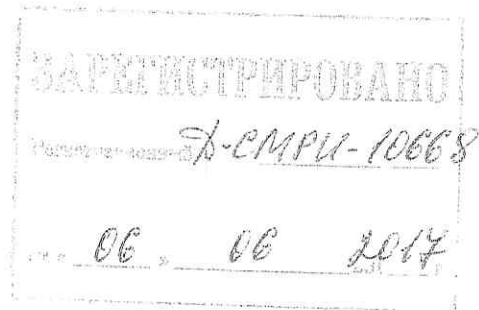 ЗАРЕГИСТРИРОВАНО
Д-СМРИ-10668
« 06 » 06 2017 г